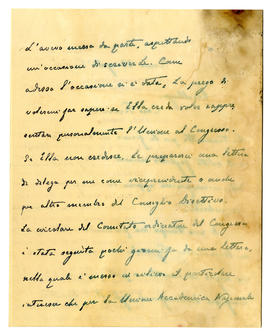 L'avevo messa da parte, aspettando
un'occasione di scriverle. Come
adesso l'occasione si è data, La prego di
volermi far sapere se Ella creda voler rappre
sentare personalmente l'Unione al Congresso.
Se Ella non credesse, Le preparerei una lettera
di delega per me come vicepresidente o anche
per altro membro del Consiglio Direttivo.
La circolare del Comitato ordinatore del Congresso
è stata seguita pochi giorni fa da una lettera,
nella quale è messo in rilievo il particolare
interesse che per la Unione Accademica Nazionale